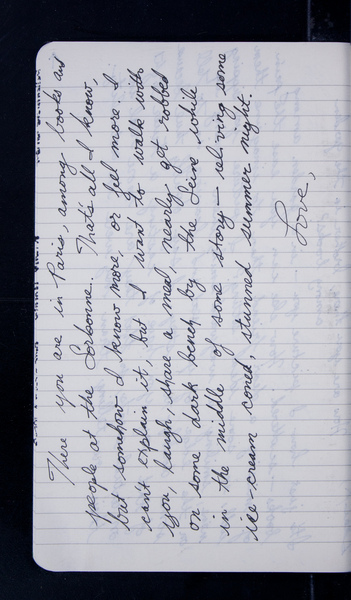 There you are in Paris, among books and
people at the Sorbonne. That's all I know,
but somehow I know more, or feel more. I
can't explain it, but I want to walk with
you, laugh, share a meal, nearly get robbed
on some dark bench by the Seine while
in the middle of some story — reliving some
ice-cream coned, stunned summer night.
Love,